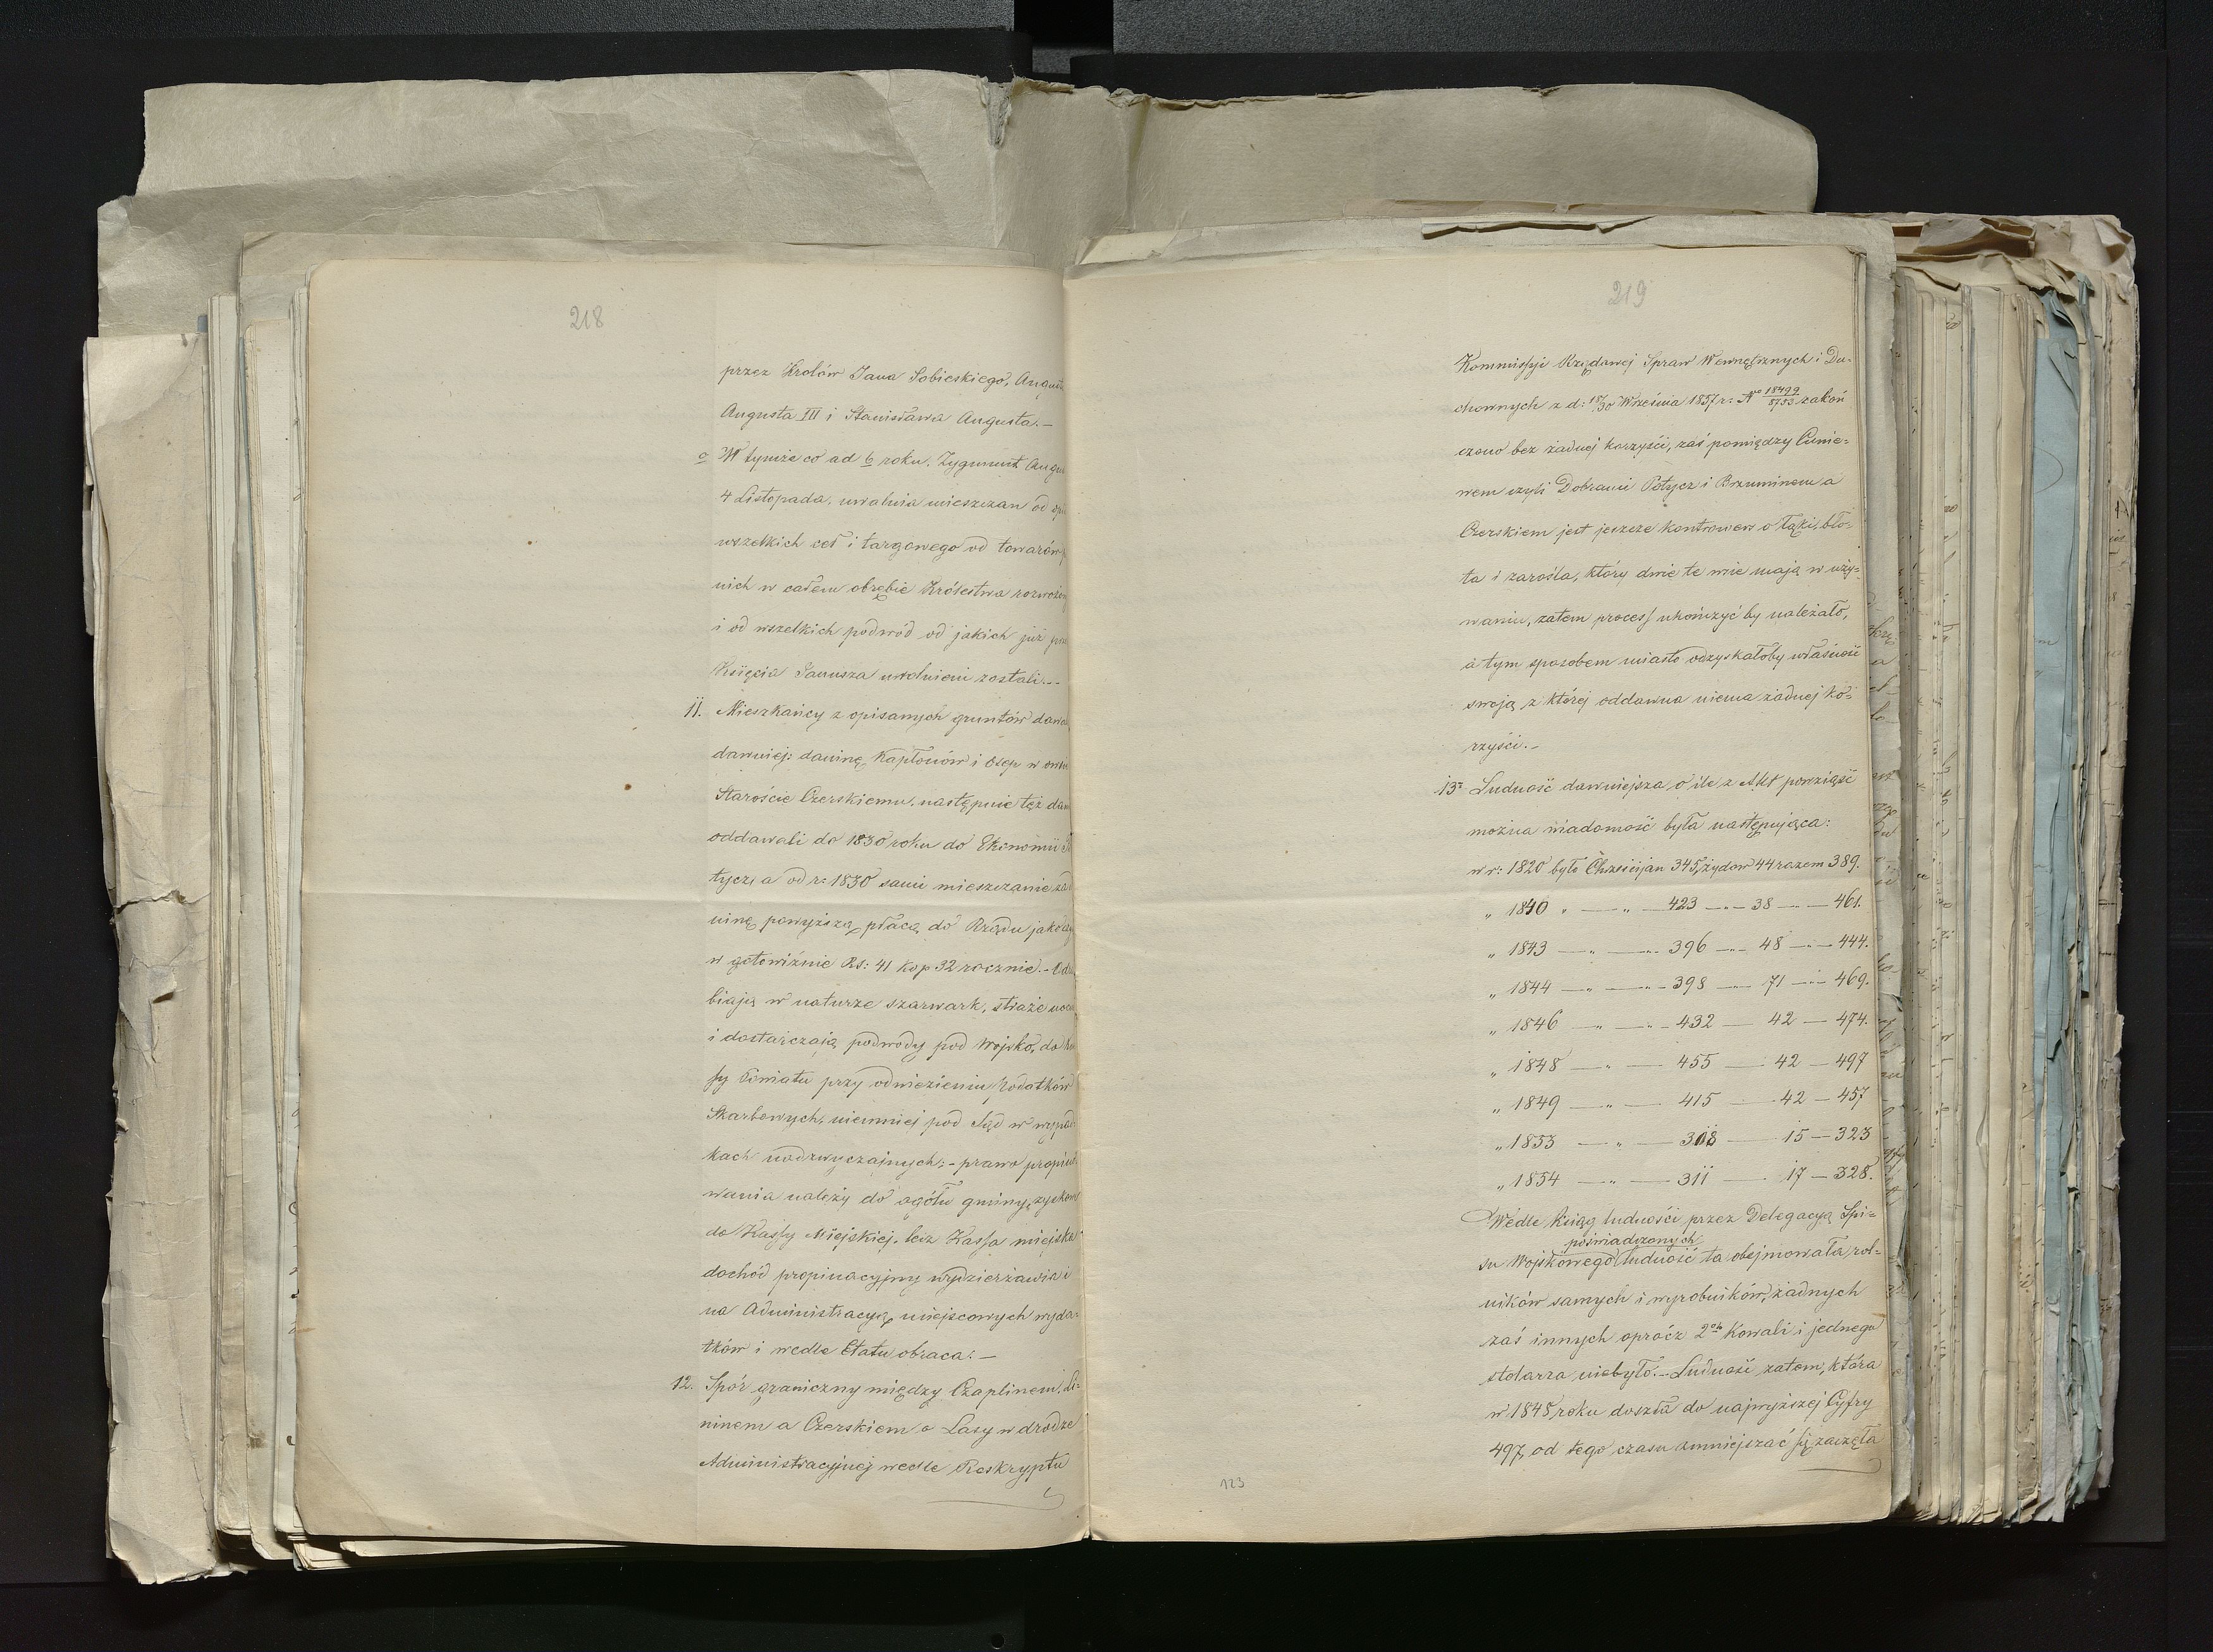 218
przez Krolów Jana Sobieskiego, Augus
Augusta III i Stanisława Augusta.—
c W tymże co ad b roku, Zygmunt Augu
4 Listopada, uwalnia mieszczan od
wszelkich ceł i targowego od towarów
nich w całem obrębie Królestwa rozwożon
i od wszelkich podwód od jakich już
Księcia Janusza uwolnieni zostali.—
11. Mieszkańcy z opisanych gruntów dawa
dawniej: daninę, Kapłonów i Osep w ows
Staroście Czerskiemu, następnie też dan
oddawali do 1830 roku do Ekonomii
tycz, a od r: 1830 sami mieszczanie
ninę powyższą płacą do Rządu jako
w gotowiźnie Rs: 41 kop 32 rocznie.— Od
biają w naturze szarwark, straże noc
i dostarczają podwody pod Wojsko, do
sy Powiatu przy odwiezieniu podatków
Skarbowych, niemniej pod Sąd w wypad
kach nadzwyczajnych;— prawo propino
wania należy do ogółu gminy, zyskom
do Kassy Miejskiej, lecz Kassa miejska
dochód propinacyjny wydzierżawia i
na Administracyą miejscowych wyda=
tków i wedle Etatu obraca.—
12. Spór graniczny między Czaplinem, Li=
ninem a Czerskiem o Lasy w drodze
Administracyjnej wedle Reskryptu
219
Kommissyi Rządowej Spraw Wewnętrznych i Du=
chownych z d: 18/30 Września 1857 r: No 18499/8753 zakoń
czono bez żadnej korzyści, zaś pomiędzy Cunie=
wem czyli Dobrami Potycz i Brzuminem a
Czerskiem jest jeszcze kontrowers o łąki, bło=
ta i zarośla, który dwie te wsie mają w uży=
waniu, zatem process ukończyć by należało,
a tym sposobem miasto odzyskałoby własność
swoją z której oddawna niema żadnej ko=
rzyści.—
13. Ludność dawniejsza o ile z Akt powziąść
można wiadomość była następująca:
w r: 1820 było Chrześcijan 345, żydów 44 razem 389.
„ 1840 „ — „ — 423 — „ — 38 — „ — 461.
„ 1843 — „ — „ — 396 — „ — 48 — „ — 444.
„ 1844 — „ — „ — 398 — „ — 71 — „ — 469.
„ 1846 — „ — „ — 432 — 42 — 474.
„ 1848 — „ — 455 — 42 — 497
„ 1849 — „ — 415 — 42 — 457
„ 1853 — „ — 308 — 15 — 323
„ 1854 — „ — 311 — 17 — 328.
Wedle ksiąg ludności przez Delegacyą Spi=
poświadczonych
su Wojskowego ludność ta obejmowała rol=
ników samych i wyrobników, żadnych
zaś innych oprócz 2ch Kowali i jednego
stolarza niebyło.— Ludność zatem, która
w 1848 roku doszła do najwyższej Cyfry
497, od tego czasu zmniejszać się zaczęła
123